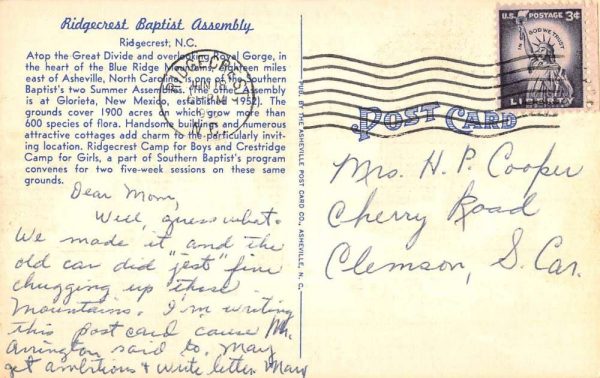 Ridgecrest Baptist Assembly
Ridgecrest, N.C.
Atop the Great Divide and overlooking Royal Gorge, in
the heart of the Blue Ridge Mountains, eighteen miles
east of Asheville, North Carolina, is one of the Southern
Baptist's two Summer Assemblies. (The other Assembly
is at Glorieta, New Mexico, established 1952). The
grounds cover 1900 acres which grow more than
600 species of flora. Handsome buildings and numerous
attractive cottages add charm to this particularly invit-
ing location. Ridgecrest Camp for Boys and Crestridge
Camp for Girls, a part of Southern Baptist's program
convenes for two five-week sessions on these same
grounds.
Dear Mom,
Well, guess what.
We made it and the
old car did "jest" fine
chugging up these
mountains. I'm writing
this post card cause Mr.
Arrington said to. May
get ambitions + write letter. Mary
RIDGECREST
JUN
N.C.
PUB. BY THE ASHEVILLE POST CARD CO., ASHEVILLE, N. C.
U.S. POSTAGE 3¢
IN GOD WE TRUST
LIBERTY
POST CARD
Mrs. H. P. Cooper
Cherry Road
Clemson, S. Car.